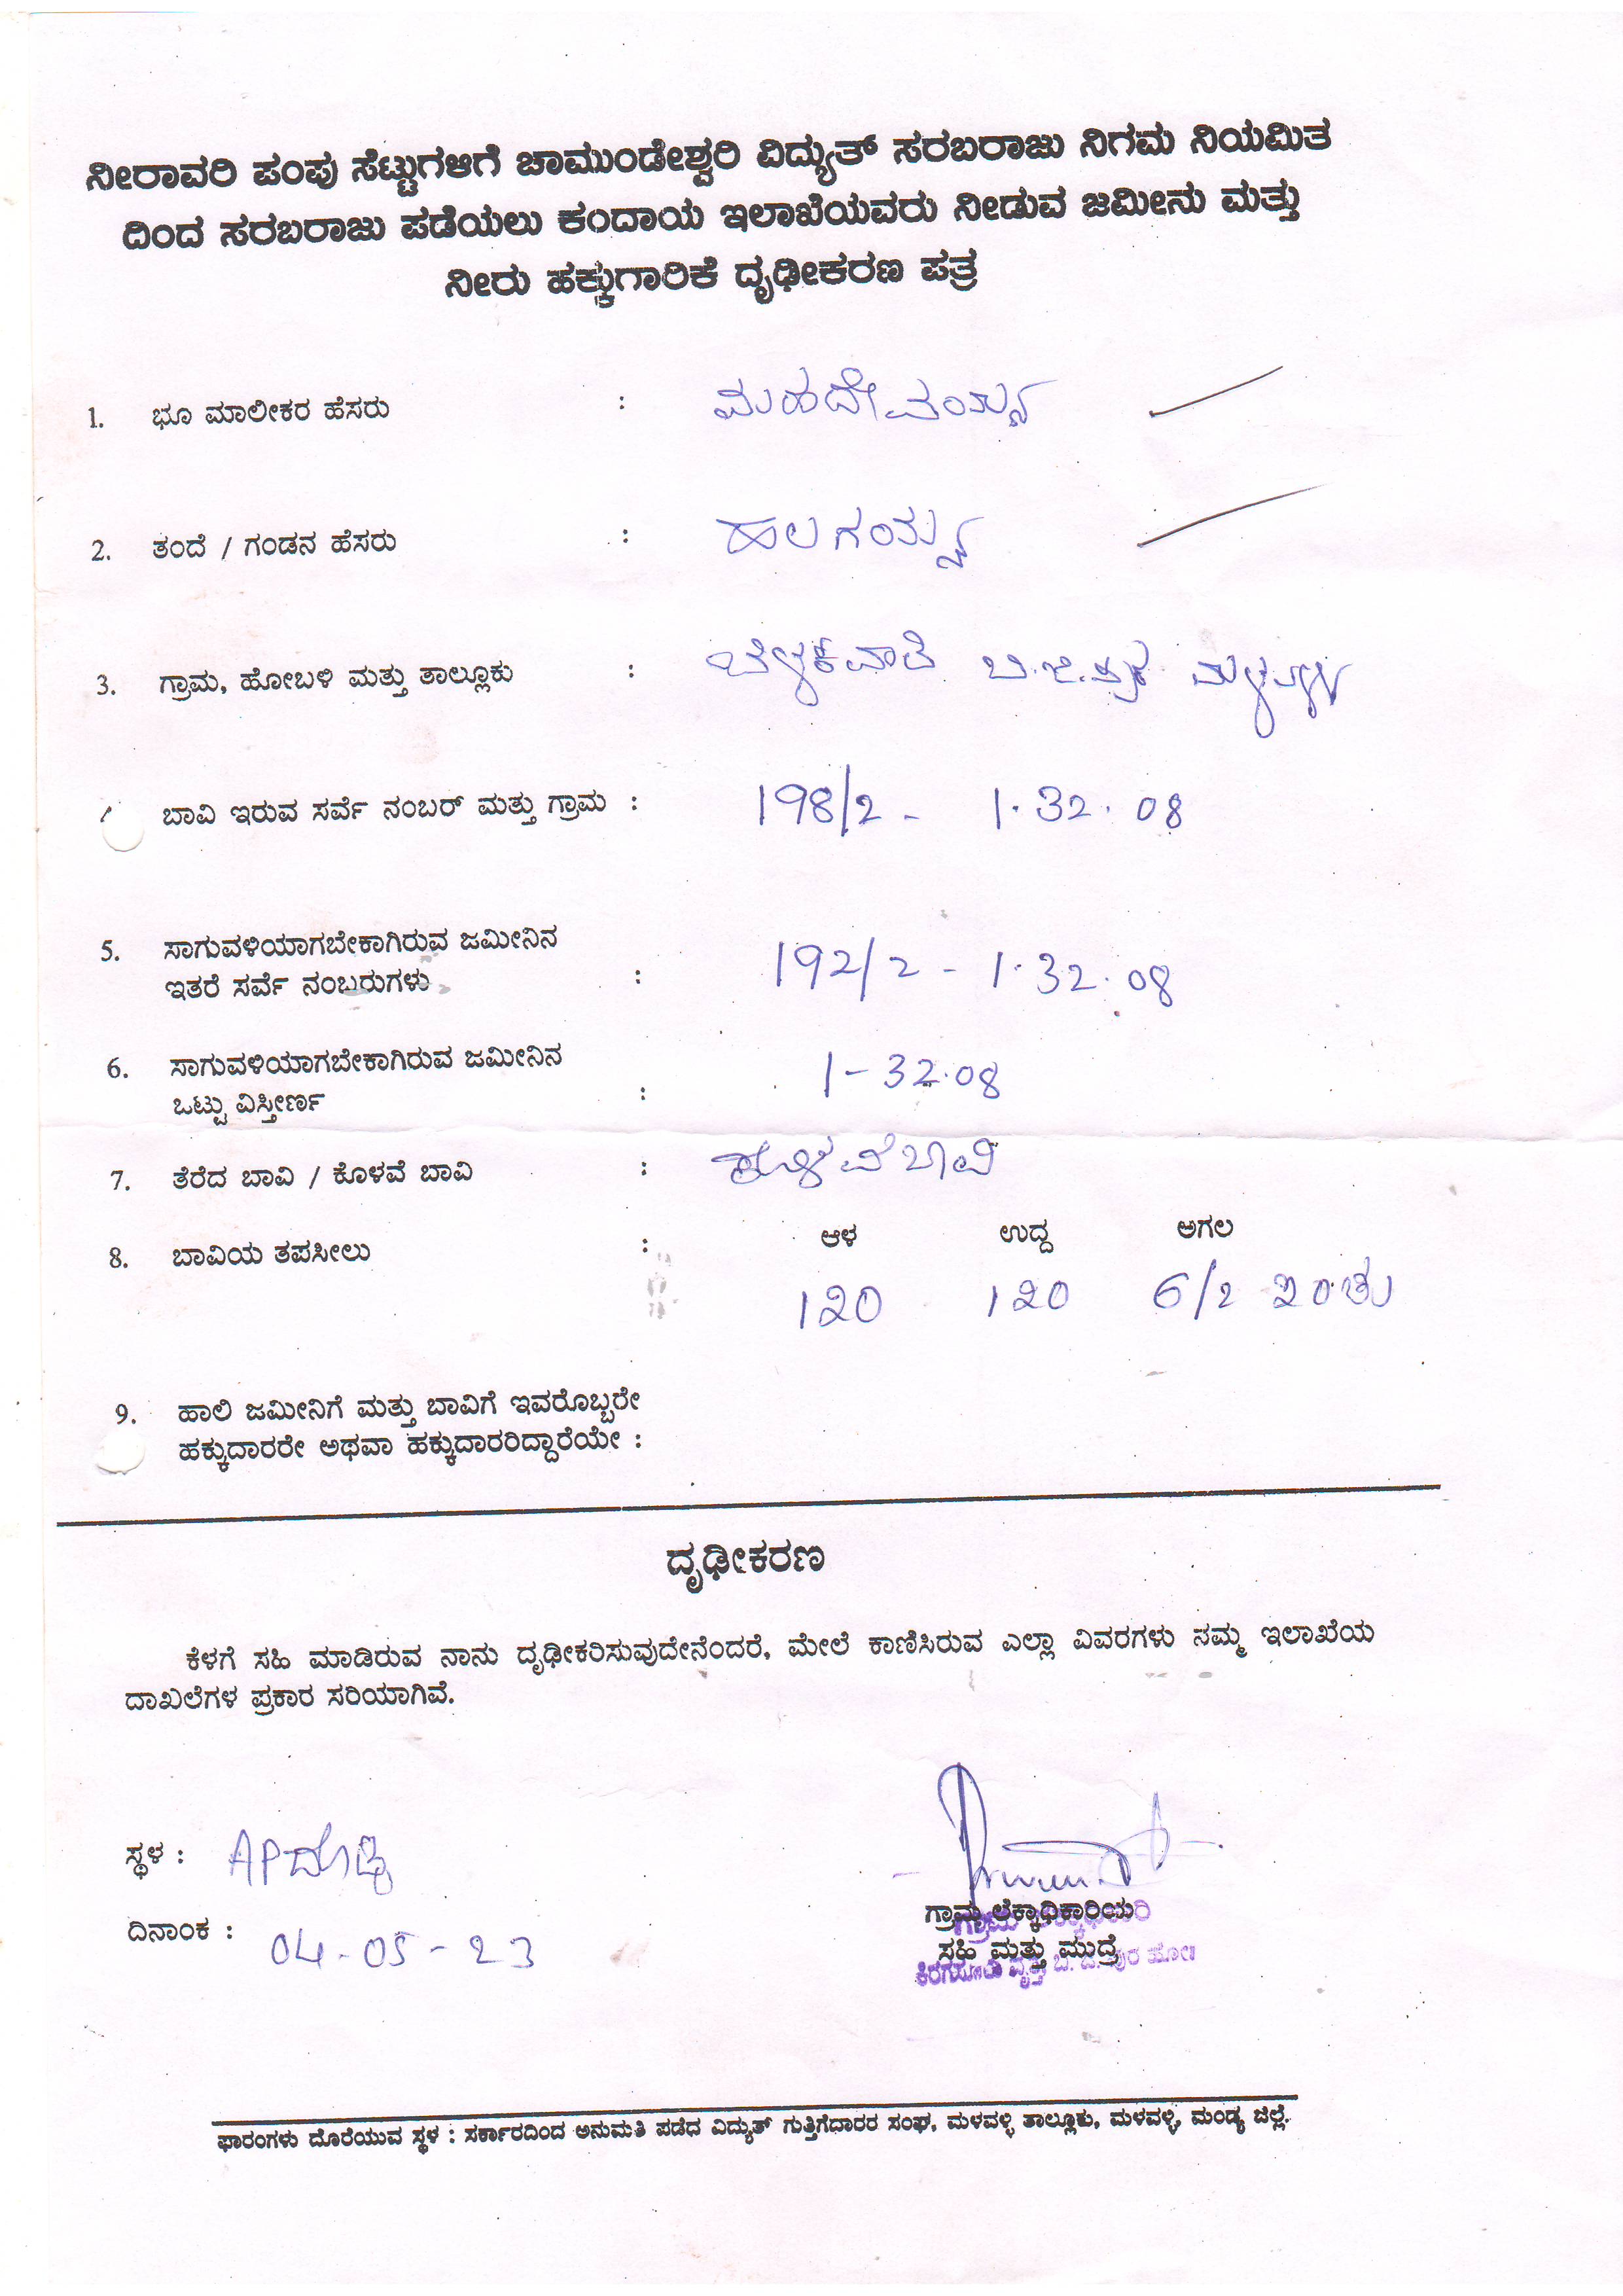 ನೀರಾವರಿ ಪಂಪು ಸೆಟ್ಟುಗಳಿಗೆ ಚಾಮುಂಡೇಶ್ವರಿ ವಿದ್ಯುತ್ ಸರಬರಾಜು ನಿಗಮ ನಿಯಮಿತ
ದಿಂದ ಸರಬರಾಜು ಪಡೆಯಲು ಕಂದಾಯ ಇಲಾಖೆಯವರು ನೀಡುವ ಜಮೀನು ಮತ್ತು
ನೀರು ಹಕ್ಕುಗಾರಿಕೆ ದೃಢೀಕರಣ ಪತ್ರ
1. ಭೂ ಮಾಲೀಕರ ಹೆಸರು : ಮಹದೇವಯ್ಯ
2. ತಂದೆ / ಗಂಡನ ಹೆಸರು :
3. ಗ್ರಾಮ, ಹೋಬಳಿ ಮತ್ತು ತಾಲ್ಲೂಕು : ಬೆಳಕವಾಡಿ ಬಿ.ಜಿ.ಪುರ
ಬಾವಿ ಇರುವ ಸರ್ವೆ ನಂಬರ್ ಮತ್ತು ಗ್ರಾಮ : 198/2 - 1.32.08
5. ಸಾಗುವಳಿಯಾಗಬೇಕಾಗಿರುವ ಜಮೀನಿನ
ಇತರೆ ಸರ್ವೆ ನಂಬರುಗಳು : 192/2 - 1.32.08
6. ಸಾಗುವಳಿಯಾಗಬೇಕಾಗಿರುವ ಜಮೀನಿನ
ಒಟ್ಟು ವಿಸ್ತೀರ್ಣ : 1-32.08
7. ತೆರೆದ ಬಾವಿ / ಕೊಳವೆ ಬಾವಿ : ಕೊಳವೆ ಬಾವಿ
8. ಬಾವಿಯ ತಪಸೀಲು : ಆಳ ಉದ್ದ ಅಗಲ
120 120 6/2 ಇಂಚು
9. ಹಾಲಿ ಜಮೀನಿಗೆ ಮತ್ತು ಬಾವಿಗೆ ಇವರೊಬ್ಬರೇ
ಹಕ್ಕುದಾರರೇ ಅಥವಾ ಹಕ್ಕುದಾರರಿದ್ದಾರೆಯೇ :
ದೃಢೀಕರಣ
ಕೆಳಗೆ ಸಹಿ ಮಾಡಿರುವ ನಾನು ದೃಢೀಕರಿಸುವುದೇನೆಂದರೆ, ಮೇಲೆ ಕಾಣಿಸಿರುವ ಎಲ್ಲಾ ವಿವರಗಳು ನಮ್ಮ ಇಲಾಖೆಯ
ದಾಖಲೆಗಳ ಪ್ರಕಾರ ಸರಿಯಾಗಿವೆ.
ಸ್ಥಳ : AP ದೊಡ್ಡಿ
ದಿನಾಂಕ : 04-05-23
ಗ್ರಾಮ ಲೆಕ್ಕಾಧಿಕಾರಿಯ
ಸಹಿ ಮತ್ತು ಮುದ್ರೆ
ಫಾರಂಗಳು ದೊರೆಯುವ ಸ್ಥಳ : ಸರ್ಕಾರದಿಂದ ಅನುಮತಿ ಪಡೆದ ವಿದ್ಯುತ್ ಗುತ್ತಿಗೆದಾರರ ಸಂಘ, ಮಳವಳ್ಳಿ ತಾಲ್ಲೂಕು, ಮಳವಳ್ಳಿ, ಮಂಡ್ಯ ಜಿಲ್ಲೆ.